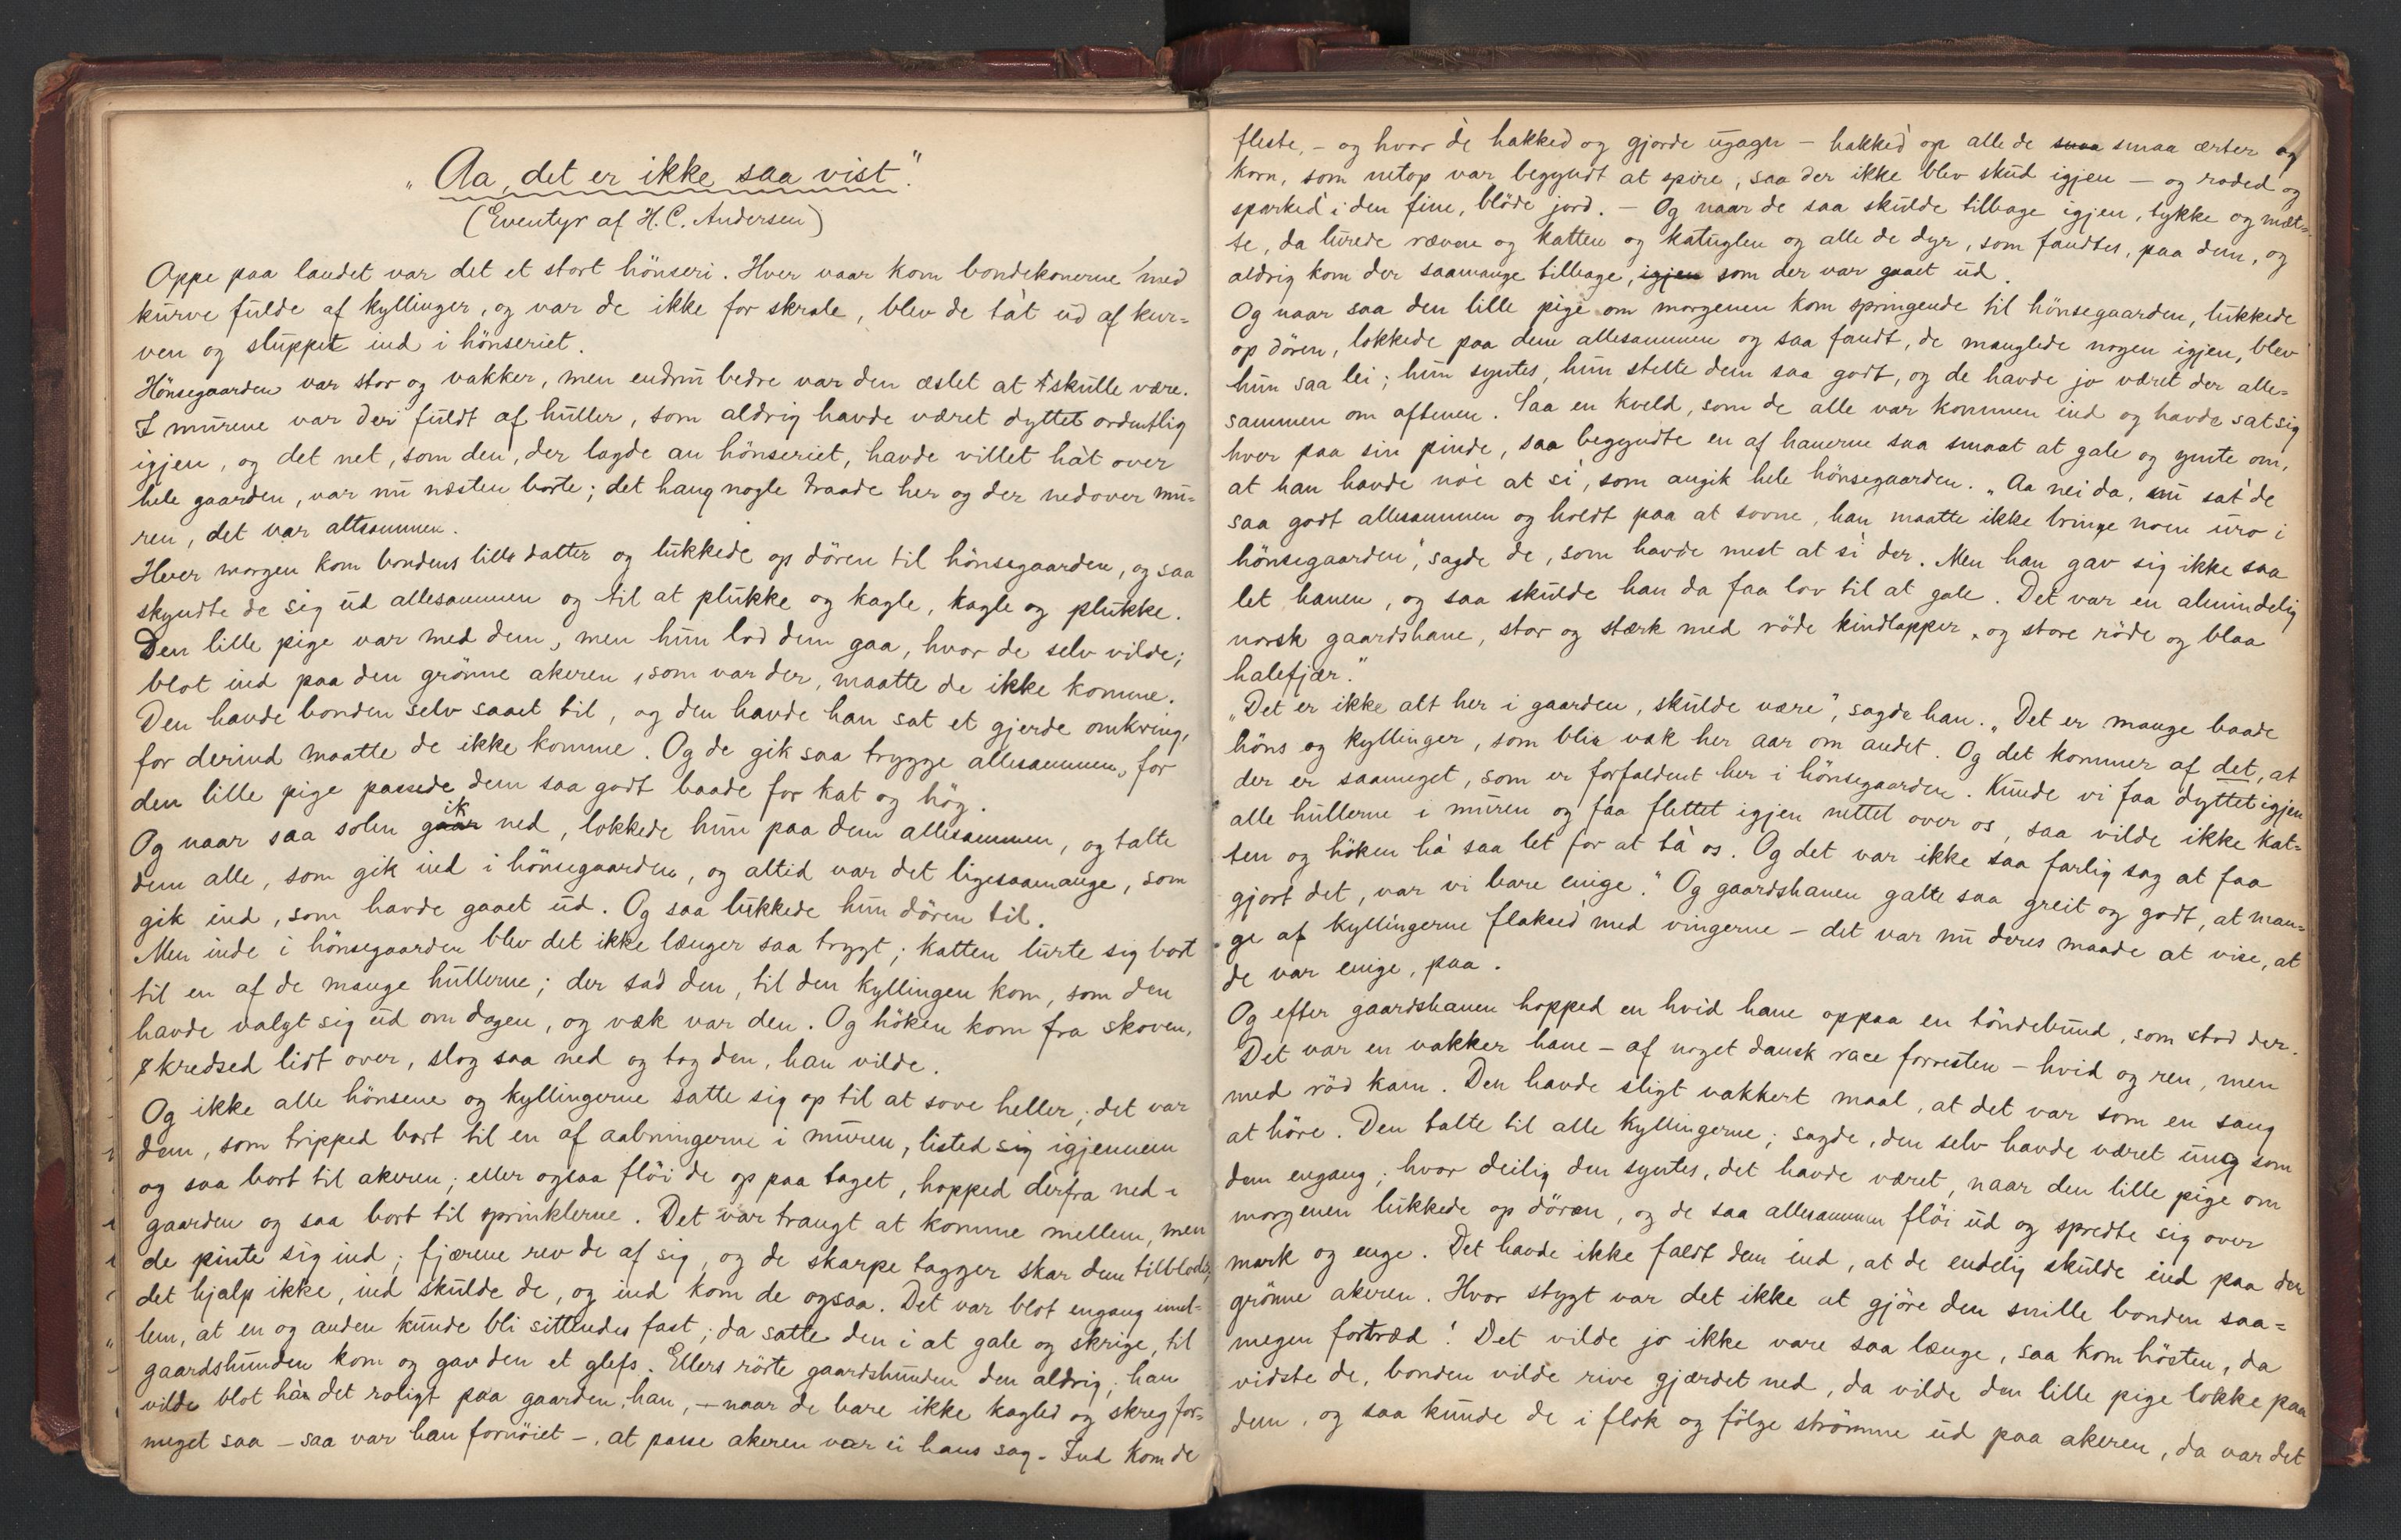 „Aa, det er ikke saa vist".
(Eventyr af H. C. Andersen)
Oppe paa landet var det et stort hönseri. Hver vaar kom bondekonerne med
kurve fulde af kyllinger, og var de ikke for skrale, blev de ta't ud af kur=
ven og sluppet ind i hönseriet.
Hönsegaarden var stor og vakker, men endnu bedre var den æslet at skulle være.
I murene var der fuldt af huller, som aldrig havde været dyttet ordentlig
igjen, og det net, som den, der lagde an hönseriet, havde villet ha't over
hele gaarden, var nu næsten borte; det hang nogle traade her og der nedover mu=
ren, det var altsammen.
Hver morgen kom bondens lille datter og lukkede op dören til hönsegaarden, og saa
skyndte de sig ud allesammen og til at plukke og kagle, kagle og plukke.
Den lille pige var med dem, men hun lod dem gaa, hvor de selv vilde;
blot ind paa den grönne akeren, som var der, maatte de ikke komme.
Den havde bonden selv saaet til, og den havde han sat et gjerde omkring,
for derind maatte de ikke komme. Og de gik saa trygge allesammen, for
den lille pige passede dem saa godt baade for kat og hög.
Og naar saa solen gik ned, lokkede hun paa dem allesammen, og talte
dem alle, som gik ind i hönsegaarden, og altid var det ligesaamange, som
gik ind, som havde gaaet ud. Og saa lukkede hun dören til.
Men inde i hönsegaarden blev det ikke længer saa trygt; katten lurte sig bort
til en af de mange hullerne; der sad den, til den kyllingen kom, som den
havde valgt sig ud om dagen, og væk var den. Og höken kom fra skoven,
kredsed lidt over, slog saa ned og tog den, han vilde.
Og ikke alle hönsene og kyllingerne satte sig op til at sove heller; det var
dem, som tripped bort til en af aabningerne i muren, listed sig igjennem
og saa bort til akeren; eller ogsaa flöi de op paa taget, hopped derfra ned i
gaarden og saa bort til sprinklerne. Det var trangt at komme mellem, men
de pinte sig ind; fjærene rev de af sig, og de skarpe tagger skar dem tilblods,
det hjalp ikke, ind skulde de, og ind kom de ogsaa. Det var blot engang imel=
lem, at en og anden kunde bli sittendes fast; da satte den i at gale og skrige, til
gaardshunden kom og gav den et glefs. Ellers rörte gaardshunden den aldrig; han
vilde blot ha det roligt paa gaarden, han, – naar de bare ikke kagled og skreg for=
meget saa – saa var han fornöiet –, at passe akeren var ei hans sag. Ind kom de
fleste, – og hvor de hakked og gjorde ugagn – hakked op alle de smaa smaa ærter og
korn, som netop var begyndt at spire, saa der ikke blev skud igjen – og roded og
sparked i den fine, blöde jord. – Og naar de saa skulde tilbage igjen, tykke og mæt=
te, da lurede ræven og katten og katuglen og alle de dyr, som fandtes, paa dem, og
aldrig kom der saamange tilbage, igjen som der var gaaet ud.
Og naar saa den lille pige om morgenen kom springende til hönsegaarden, lukkede
op dören, lokkede paa dem allesammen og saa fandt, de manglede nogen igjen, blev
hun saa lei; hun syntes, hun stelte dem saa godt, og de havde jo været der alle=
sammen om aftenen. Saa en kveld, som de alle var kommen ind og havde sat sig
hver paa sin pinde, saa begyndte en af hanerne saa smaat at gale og ymte om,
at han havde noe at si, som angik hele hönsegaarden. „Aa nei da, nu sat de
saa godt allesammen og holdt paa at sovne, han maatte ikke bringe noen uro i
hönsegaarden", sagde de, som havde mest at si der. Men han gav sig ikke saa
let hanen, og saa skulde han da faa lov til at gale. Det var en almindelig
norsk gaardshane, stor og stærk med röde kindlapper, og store röde og blaa
halefjær."
„Det er ikke alt her i gaarden, skulde være", sagde han. „Det er mange baade
höns og kyllinger, som blir væk her aar om andet. Og det kommer af det, at
der er saameget, som er forfaldent her i hönsegaarden. Kunde vi faa dyttet igjen
alle hullerne i muren og faa flettet igjen nettet over os, saa vilde ikke kat=
ten og höken ha saa let for at ta os. Og det var ikke saa farlig sag at faa
gjort det, var vi bare enige." Og gaardshanen galte saa greit og godt, at man=
ge af kyllingerne flaksed med vingerne – det var nu deres maade at vise, at
de var enige, paa.
Og efter gaardshanen hopped en hvid hane oppaa en töndebund, som stod der.
Det var en vakker hane – af noget dansk race forresten – hvid og ren, men
med röd kam. Den havde sligt vakkert maal, at det var som en sang
at höre. Den talte til alle kyllingerne; sagde, den selv havde været ung som
dem engang; hvor deilig den syntes, det havde været, naar den lille pige om
morgenen lukkede op dören, og de saa allesammen flöi ud og spredte sig over
mark og enge. Det havde ikke faldt dem ind, at de endelig skulde ind paa den
grönne akeren. Hvor stygt var det ikke at gjöre den snille bonden saa=
megen fortræd! Det vilde jo ikke vare saa længe, saa kom hösten, da
vidste de, bonden vilde rive gjærdet ned, da vilde den lille pige lokke paa
dem, og saa kunde de i flok og fölge strömme ud paa akeren, da var det